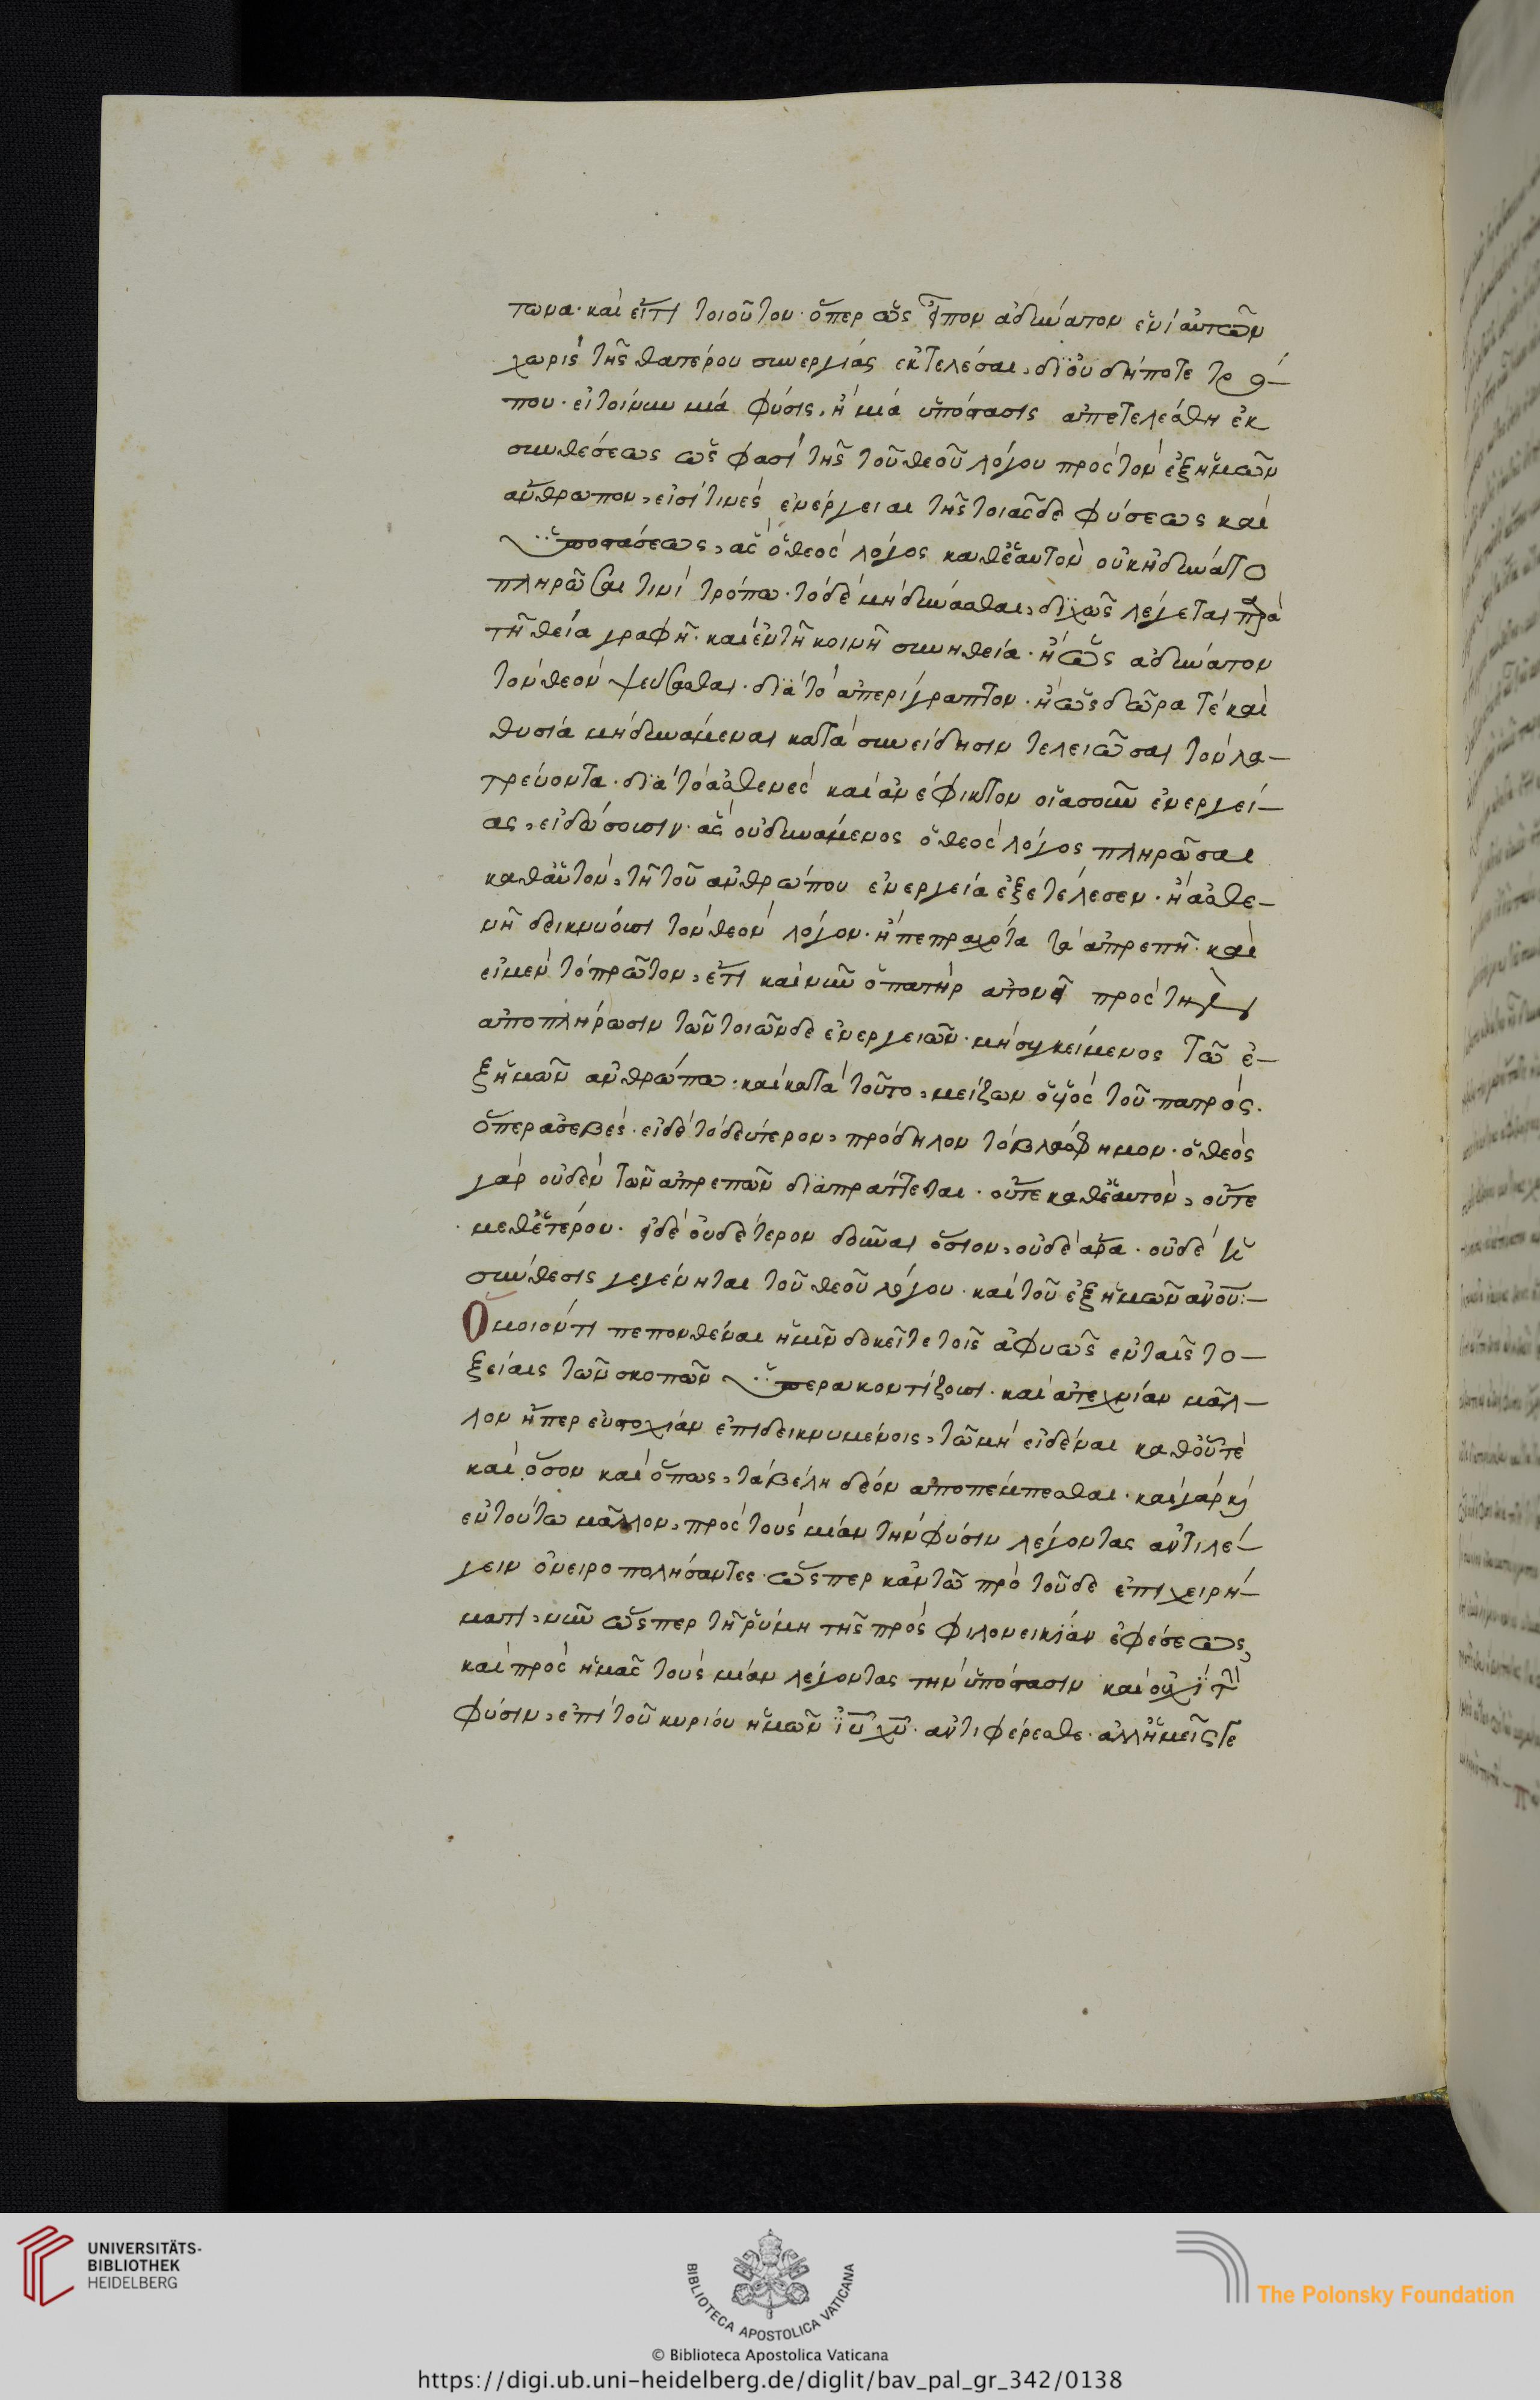 τωνα· καὶ εἴτι τοιοῦτον· ὅπερ ὡς εἶπον ἀδύνατον ἑνὶ αὐτῶν
χωρὶς τῆς θατέρου συνεργίας ἐκτελέσαι, δι οὑδήποτε τρό-
που· εἰ τοίνυν μιὰ φύσις, ἢ μιὰ ὑπόστασις ἀπετελέσθη ἐκ
συνθέσεως ὥς φασι τῆς τοῦ θεοῦ λόγου πρὸς τὸν ἐξ ἡμῶν
ἄνθρωπον, εἰσί τινὲς ἐνέργειαι τῆς τοιᾶσδε φύσεως καὶ
ὑποστάσεως, ἃς ὁ θεὸς λόγος καθ ἑαυτὸν οὐκ ἠδύνατο
πληρῶσαι τινὶ τρόπω· τὸ δὲ μὴ δύνασθαι, διχῶς λέγεται παρὰ
τῆ θεία γραφῆ· καὶ ἐν τῆ κοινῆ συνηθεία· ἢ ὡς ἀδύνατον
τὸν θεὸν ψεύσασθαι· διὰ τὸ ἀπερίγραπτον· ἢ ὡς δῶρα τὲ καὶ
θυσία μὴ δυνάμεναι κατὰ συνείδησιν τελειῶσαι τὸν λα-
τρεύοντα· διὰ τὸ ἀσθενὲς καὶ ἀνέφικτον οἵας οὖν ἐνεργεί-
ας, εἰ δώσουσιν· ἃς οὐ δυνάμενος ὁ θεὸς λόγος πληρῶσαι
καθ αὑτὸν, τῆ τοῦ ἀνθρώπου ἐνεργεία ἐξετέλεσεν· ἢ ἀσθε-
νῆ δεικνύουσι τὸν θεὸν λόγον· ἢ πεπραχότα τὰ ἀπρεπῆ· καὶ
εἰ μὲν τὸ πρῶτον, ἔτι καὶ νῦν ὁ πατὴρ ἀτονεῖ πρὸς τὴν
ἀποπλήρωσιν τῶν τοιῶνδε ἐνεργειῶν· μὴ συγκείμενος τῶ ἐ-
ξ ἡμῶν ἀνθρώπω· καὶ κατὰ τοῦτο, μείζων ὁ υἱὸς τοῦ πατρός·
ὅπερ ἀσεβές· εἰ δὲ τὸ δεύτερον, πρόδηλον τὸ βλάσφημον· ὁ θεὸς
γὰρ οὐδὲν τῶν ἀπρεπῶν διαπράττεται· οὔτε καθ ἑαυτὸν, οὔτε
μεθ ἑτέρου· εἰ δὲ οὐδέτερον δοῦναι ὅσιον, οὐδὲ ἄρα· οὐδὲ
σύνθεσις γεγένηται τοῦ θεοῦ λόγου· καὶ τοῦ ἐξ ἡμῶν ἀνοῦ:-
Ὅμοιόν τι πεπονθέναι ἡμῖν δοκεῖτε τοῖς ἀφυῶς ἐν ταῖς το-
ξείαις τῶν σκοπῶν ὑπερακοντίζουσι· καὶ ἀτεχνίαν μᾶλ-
λον ἤπερ εὐστοχίαν ἐπιδεικνυμένοις, τῶ μὴ εἰδέναι καθ ὅ,τε
καὶ ὅσον καὶ ὅπως, τὰ βέλη δέον ἀποπέμπεσθαι· καὶ γὰρ κἀ
ἐν τούτω μᾶλλον, πρὸς τοὺς μίαν τὴν φύσιν λέγοντας ἀντιλέ-
γειν ὀνειροπολήσαντες· ὥσπερ κἀν τῶ πρὸ τοῦδε ἐπιχειρή-
ματι, νῦν ὥσπερ τῆ ῥύμη τῆς πρὸς φιλονεικίαν ἐφέσεως,
καὶ πρὸς ἡμᾶς τοὺς μίαν λέγοντας τὴν ὑπόστασιν καὶ οὐχὶ τὴν
φύσιν, ἐπὶ τοῦ κυρίου ἡμῶν ἰυ χυ· ἀντιφέρεσθε· ἀλλ ἡμεῖς τε
UNIVERSITÄTS-
BIBLIOTHEK
HEIDELBERG
BIBLIOTECA APOSTOLICA VATICANA
The Polonsky Foundation
© Biblioteca Apostolica Vaticana
https://digi.ub.uni-heidelberg.de/diglit/bav_pal_gr_342/0138